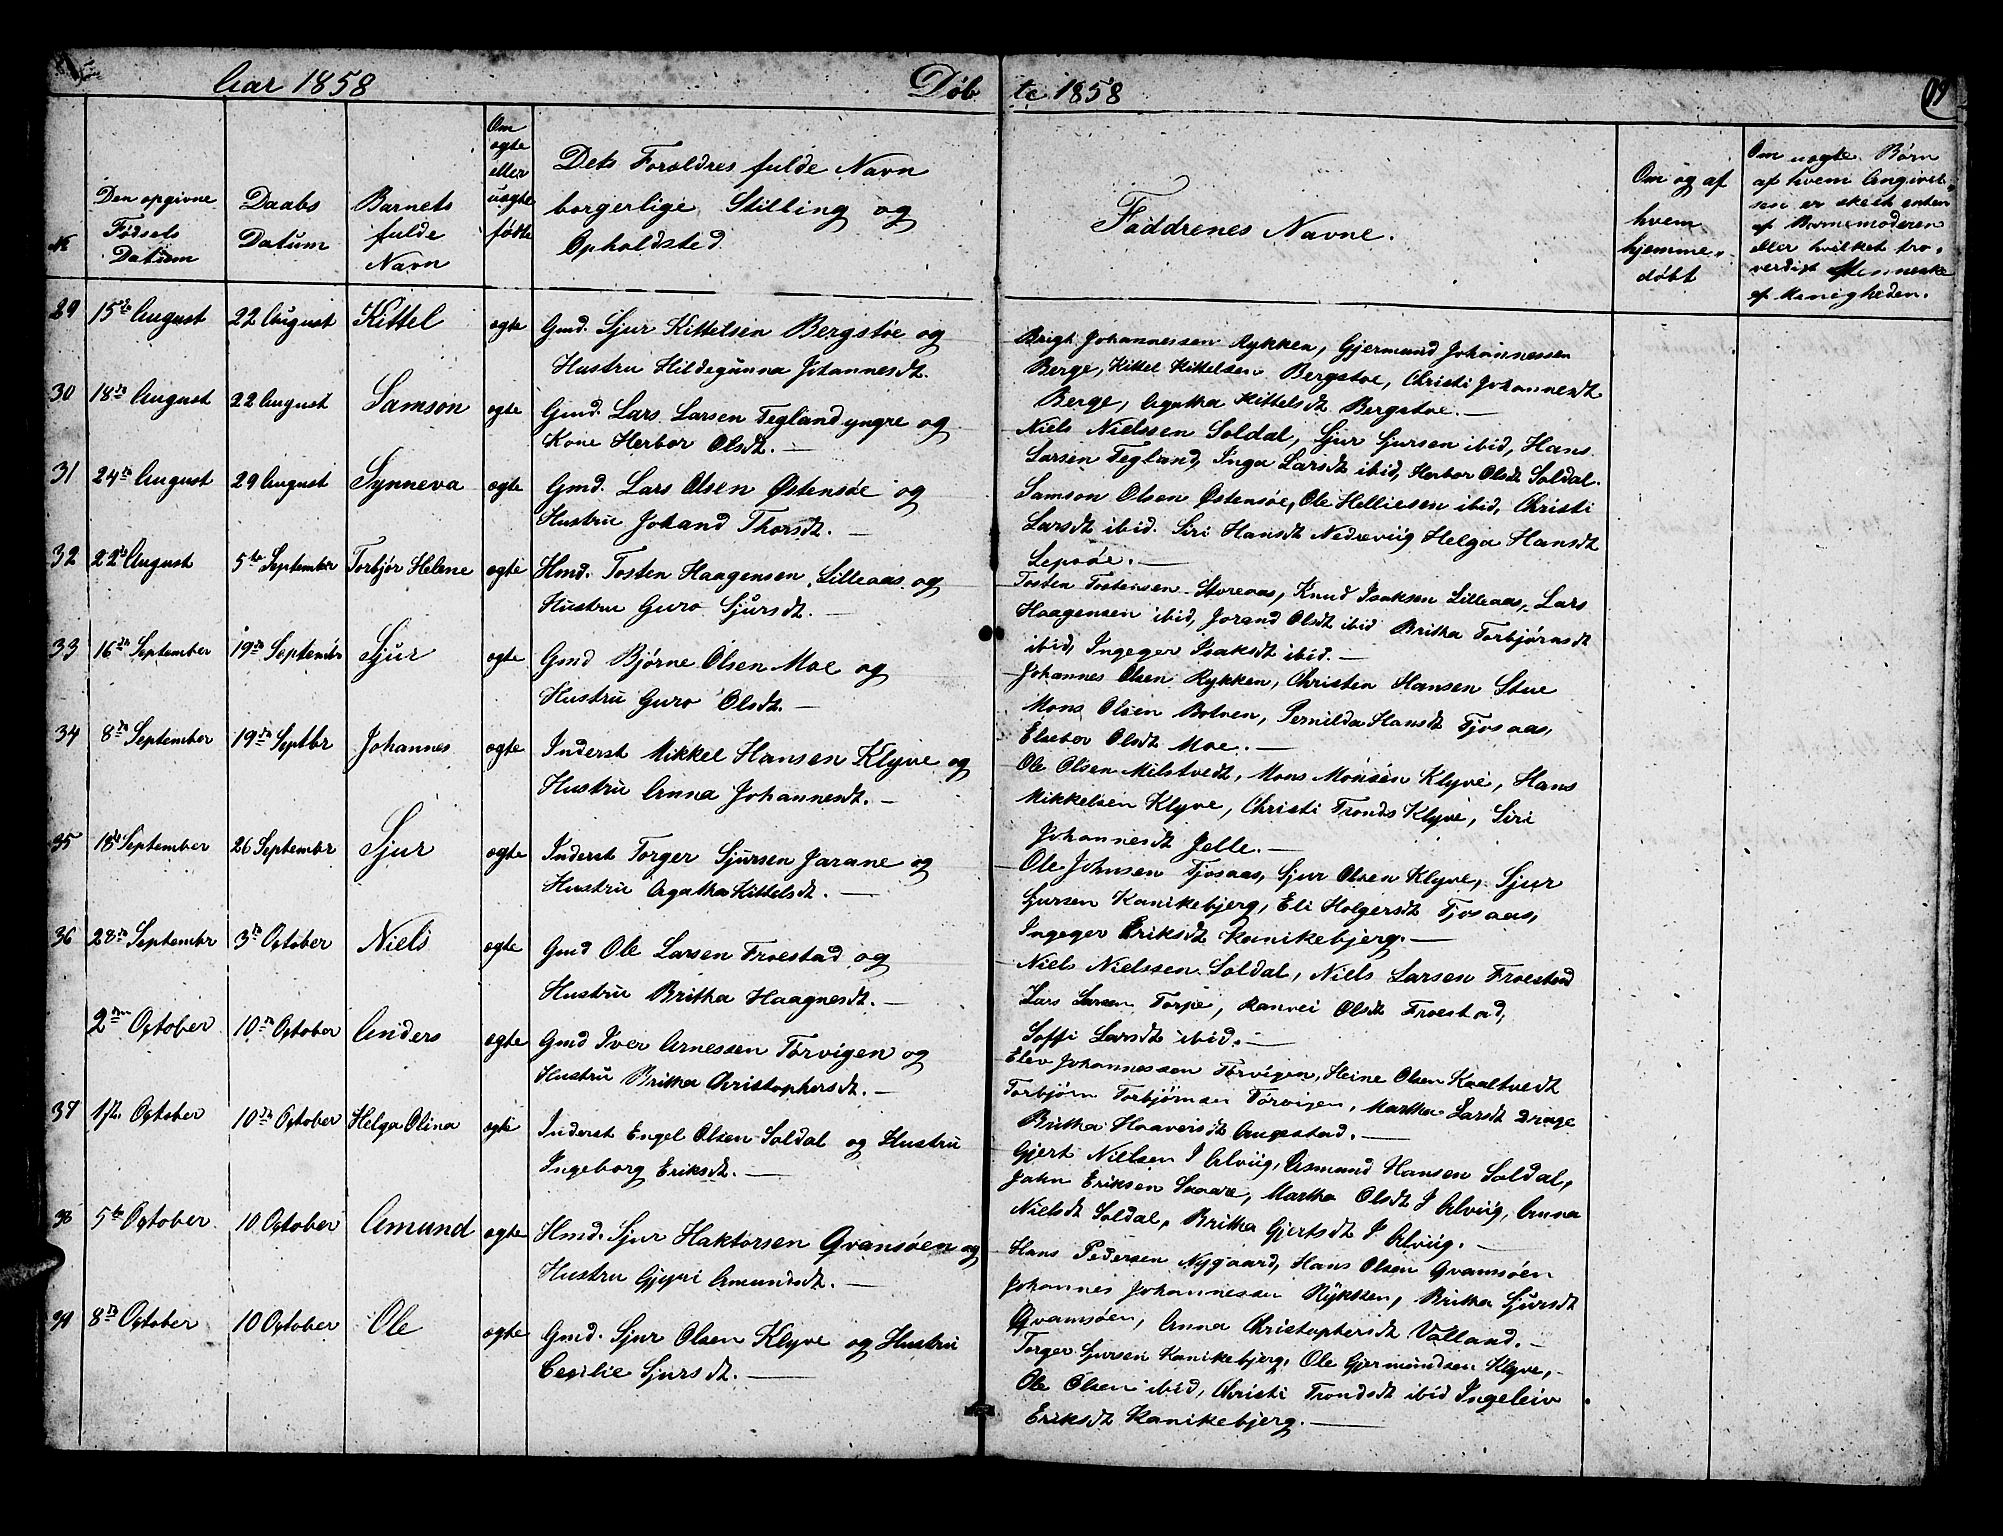 Aar 1858
Døb te 1858
№
Den opgivne
Fødsels
Datum
Daabs
Datum
Barnets
fulde
Navn
Om
ægte
eller
uægte
født
Dets Forældres fulde Navn
borgerlige Stilling og
Opholdsted.
Faddrenes Navne.
Om og af
hvem
hjemme-
døbt
Om uægte Børn
af hvem Angivel-
sen er skeet enten
af Barnemoderen
eller hvilket tro-
verdigt Menneske
af Menigheden.
29 15de August 22 August Kittel ægte Gmd. Sjur Kittelsen Bergstøe og
Hustru Hildegunna Johannesdt.
Brigt Johannessen Rykken, Gjermund Johannessen
Berge, Kittel Kittelsen Bergstøe, Christi Johannesdt
Berge, Agatha Kittelsdt Bergstøe. —
30 18de August 22 August Samson ægte Gmd. Lars Larsen Tegland yngre og
Kone Herbor Olsdt. —
Niels Nielssen Soldal, Sjur Sjursen ibid, Hans
Larsen Tegland, Inga Larsdt ibid, Herbor Olsdt Soldal.
31 24de August 29 August Synneva ægte Gmd. Lars Olsen Østensøe og
Hustru Johand Thorsdt. —
Samson Olsen Østensøe, Ole Helliesen ibid, Christi
Larsdt ibid. Siri Hansdt Nedreviig Helga Hansdt
Lepsøe. —
32 22de August 5te September Torbjør Helene ægte Hmd. Tosten Haagensen Lilleaas og
Hustru Guro Sjursdt. —
Tosten Tostensen Storeaas, Knud Isaksen Lilleaas, Lars
Haagensen ibid, Jorand Olsdt ibid Britha Torbjørnsdt
ibid, Ingeger Isaksdt ibid. —
33 16de September 19de September Sjur ægte Gmd Bjørne Olsen Moe og
Hustru Guro Olsdt. —
Johannes Olsen Rykken, Christen Hansen Stue
Mons Olsen Botnen, Pernilda Hansdt Tjosaas,
Elsebor Olsdt Moe. —
34 8de September 19de Septbr Johannes ægte Inderst Mikkel Hansen Klyve og
Hustru Anna Johannesdt. —
Ole Olsen Milstvedt, Mons Monsen Klyve, Hans
Mikkelsen Klyve, Christi Tronds Klyve, Siri
Johannesdt Jelle. —
35 18de September 26 Septembr Sjur ægte Inderst Torger Sjursen Jarane og
Hustru Agatha Kittelsdt. —
Ole Johnsen Tjosaas, Sjur Olsen Klyve, Sjur
Sjursen Kanikebjerg, Eli Holgersdt Tjosaas,
Ingeger Eriksdt Kanikebjerg. —
36 28de Septembr 3de October Niels ægte Gmd Ole Larsen Froestad og
Hustru Britha Haagnesdt. —
Niels Nielssen Soldal, Niels Larsen Froestad
Lars Larsen Torpe, Ranvei Olsdt Froestad,
Soffi Larsdt ibid. —
2den October 10de October Anders ægte Gmd Iver Arnessen Torvigen og
Hustru Britha Christophersdt. —
Elev Johannessen Torvigen, Heine Olsen Kaaltvedt
Torbjørn Torbjørnsen Torvigen, Martha Larsdt Drage
Britha Haaversdt Augestad. —
37 1ste October 10de October Helga Olina ægte Inderst Engel Olsen Soldal og Hustru
Ingeborg Eriksdt. —
Gjert Nielsen I Alviig, Asmund Hansen Soldal,
John Eriksen Skaare, Martha Olsdt I Alviig, Anna
Nielsdt Soldal, Britha Gjertsdt I Alviig. —
38 5te October 10 October Amund ægte Hmd. Sjur Haktorsen Qvamsøen og
Hustru Gjyri Amundsdt. —
Hans Pedersen Nygaard, Hans Olsen Qvamsøen
Johannes Johannessen Rykken, Britha Sjursdt
Qvamsøen, Anna Christophersdt Valland. —
39 8de October 10 October Ole ægte Gmd. Sjur Olsen Klyve og Hustru
Cecilie Sjursdt. —
Torger Sjursen Kanikebjerg, Ole Gjermundsen Klyve,
Ole Olsen ibid, Christi Trondsdt ibid Ingeleiv
Eriksdt Kanikebjerg. —